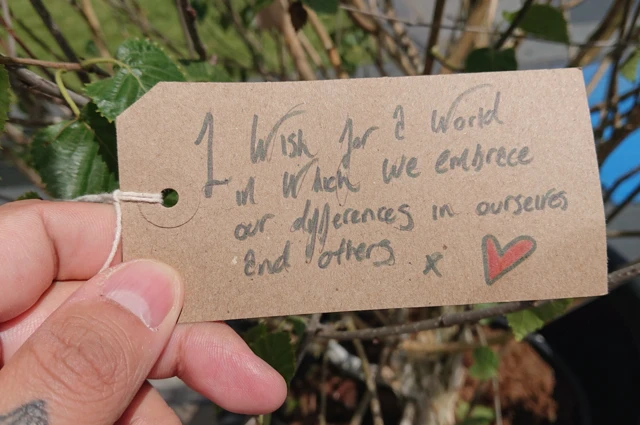 I wish for a world
in which we embrace
our differences in ourselves
and others x